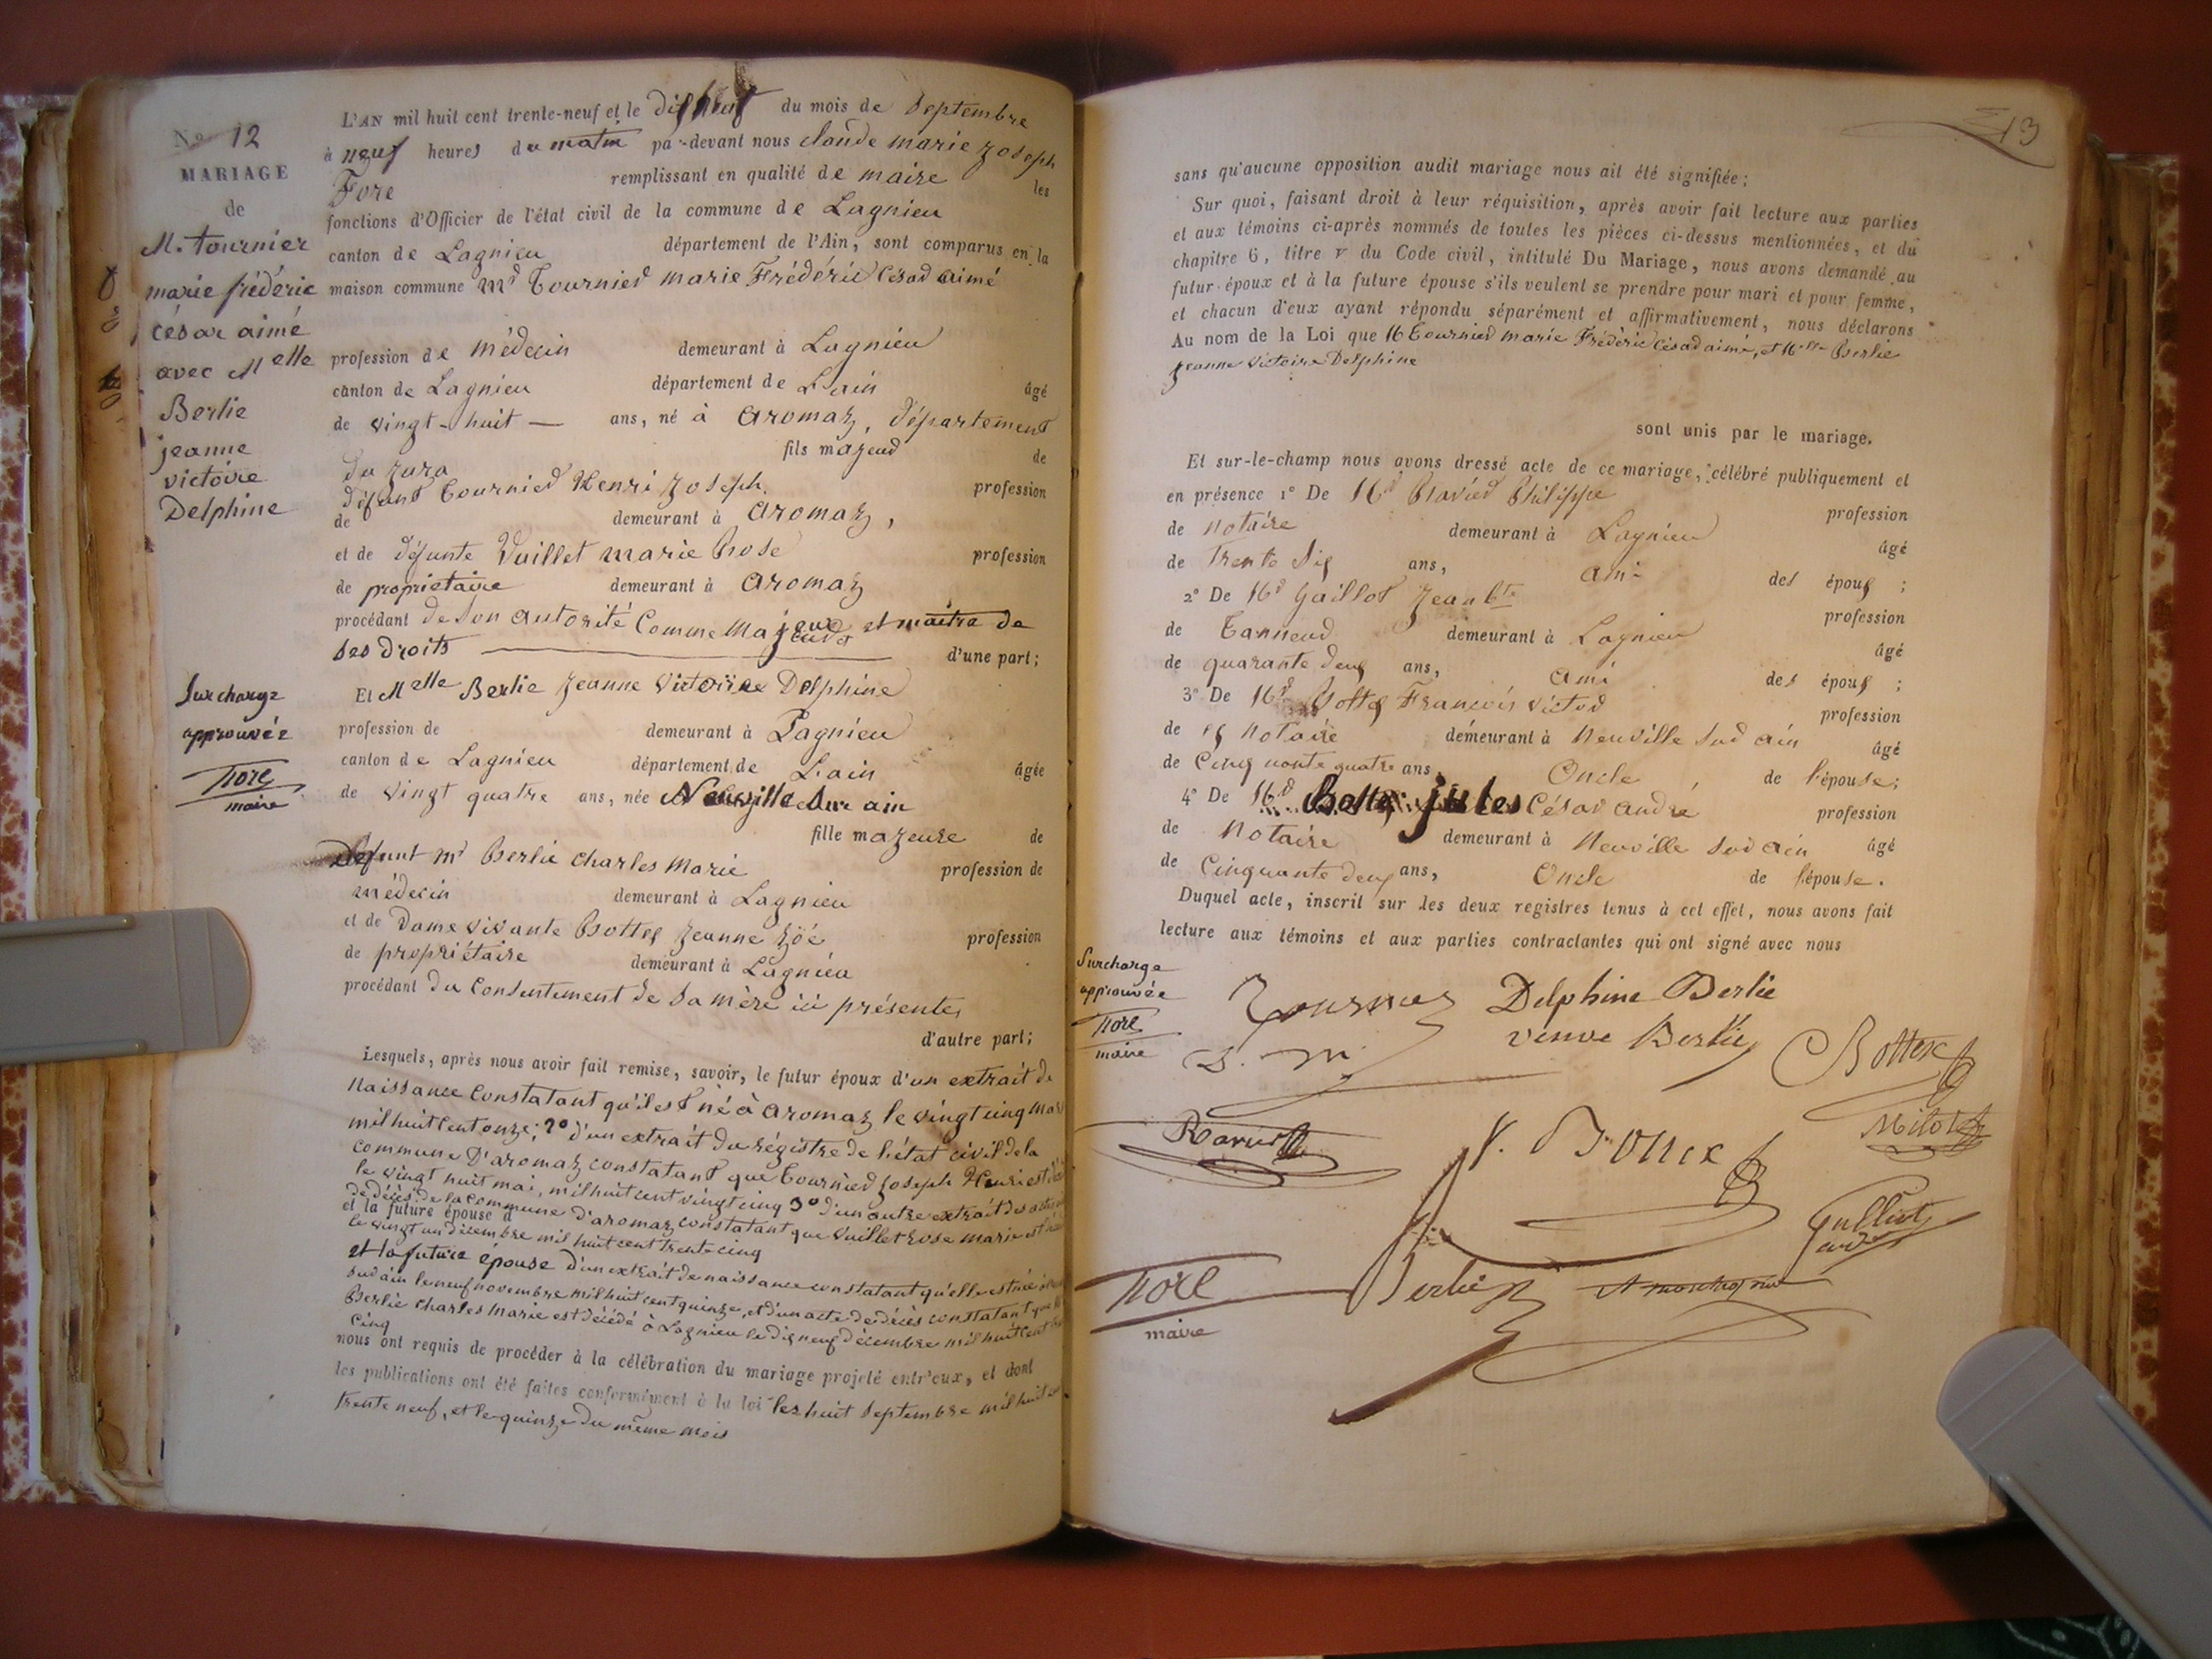 No 12
MARIAGE
de
M. tournier
marie frédéric
césar aimé
avec Melle
Berlie
jeanne
victoire
Delphine
L'AN mil huit cent trente-neuf et le du mois de Septembre
à neuf heures du matin par-devant nous claude marie joseph
Fore remplissant en qualité de maire les
fonctions d'Officier de l'état civil de la commune de Lagnieu
canton de Lagnieu département de l'Ain, sont comparus en la
maison commune Mr Tournier marie Frédéric César aimé
profession de Médecin demeurant à Lagnieu
canton de Lagnieu département de L'ain âgé
de vingt-huit — ans, né à aromaz, département
du jura fils majeur de
défunt Tournier Henri joseph profession
de demeurant à aromaz,
et de défunte Vuillet marie Rose profession
de propriétaire demeurant à aromaz
procédant de son autorité Comme Majeur et maître de
ses droits d'une part;
Surcharge
approuvée
Fore
maire
Et Melle Berlie Jeanne Victoire Delphine
profession de demeurant à Lagnieu
canton de Lagnieu département de L'ain âgée
de vingt quatre ans, née Neuville sur ain
fille majeure de
Defunt mr Berlie charles Marie profession de
médecin demeurant à Lagnieu
et de Dame vivante Bottex Jeanne Zöé profession
de propriétaire demeurant à Lagnieu
procédant du Consentement de sa mère ici présente,
d'autre part;
Lesquels, après nous avoir fait remise, savoir, le futur époux d'un extrait de
Naissance Constatant qu'il est né à aromaz le vingt cinq mars
mil huit cent onze; 2o d'un extrait du régistre de l'état civil de la
commune D'aromaz constatant que Tournier joseph Henri est
le vingt huit mai, mil huit cent vingt cinq 3o d'un autre extrait des actes
de décès de la commune d'aromaz constatant que Vuillet rose marie est
et la future épouse d
le vingt un décembre mil huit cent trente cinq
et la future épouse d'un extrait de naissance constatant qu'elle est née à
sur ain le neuf novembre mil huit cent quinze, et d'un acte de décès constatant que
Berlie charles Marie est décédé à Lagnieu le dix neuf décembre mil huit cent
cinq
nous ont requis de procéder à la célébration du mariage projeté entr'eux, et dont
les publications ont été faites conformément à la loi les huit Septembre mil huit
trente neuf, et le quinze du même mois
13
sans qu'aucune opposition audit mariage nous ait été signifiée;
Sur quoi, faisant droit à leur réquisition, après avoir fait lecture aux parties
et aux témoins ci-après nommés de toutes les pièces ci-dessus mentionnées, et du
chapitre 6, titre v du Code civil, intitulé Du Mariage, nous avons demandé au
futur époux et à la future épouse s'ils veulent se prendre pour mari et pour femme,
et chacun d'eux ayant répondu séparément et affirmativement, nous déclarons
Au nom de la Loi que M Tournier marie Frédéric César aimé, et Melle Berlie
jeanne victoire Delphine
sont unis par le mariage.
Et sur-le-champ nous avons dressé acte de ce mariage, célébré publiquement et
en présence 1o De Mr Ravier Philippe profession
de notaire demeurant à Lagnieu âgé
de Trente Six ans, ami des époux;
2o De Mr Gaillot Jean Bte profession
de Tanneur demeurant à Lagnieu âgé
de quarante deux ans, ami des époux;
3o De Mr Bottex François victor profession
de ex Notaire demeurant à Neuville sur ain âgé
de Cinquante quatre ans Oncle de l'épouse;
4o De Mr Bottex jules César andré profession
de Notaire demeurant à Neuville sur ain âgé
de Cinquante deux ans, Oncle de l'épouse.
Duquel acte, inscrit sur les deux registres tenus à cet effet, nous avons fait
lecture aux témoins et aux parties contractantes qui ont signé avec nous
Surcharge
approuvée
Fore
maire
Tournier
D. m.
Delphine Berlie
veuve Berlie
Bottex
Ravier
Milot
Fore
maire
Berlie